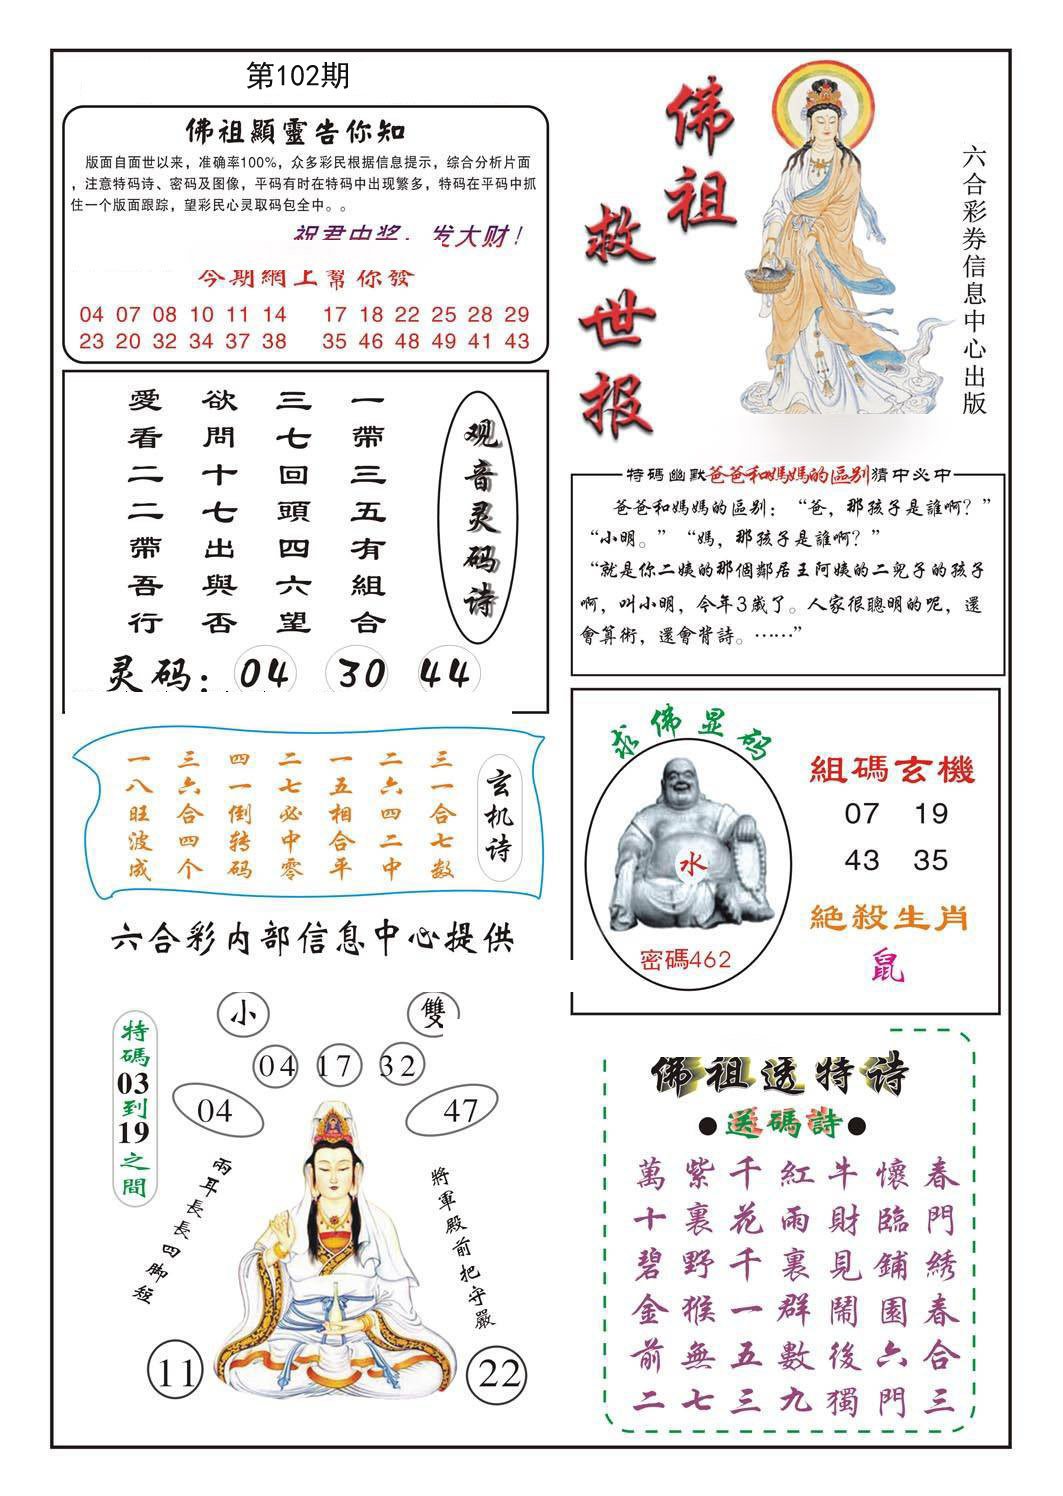 第102期
佛祖顯靈告你知
版面自面世以来，准确率100%，众多彩民根据信息提示，综合分析片面
，注意特码诗、密码及图像，平码有时在特码中出现繁多，特码在平码中抓
住一个版面跟踪，望彩民心灵取码包全中。。
祝君中奖，发大财！
今期網上幫你發
04 07 08 10 11 14 17 18 22 25 28 29
23 20 32 34 37 38 35 46 48 49 41 43
佛祖
救世报
六合彩券信息中心出版
观音灵码诗
一帶三五有組合
三七回頭四六望
欲問十七出與否
愛看二二帶吾行
灵码：04 30 44
特碼幽默爸爸和媽媽的區别猜中必中
爸爸和媽媽的區别：“爸，那孩子是誰啊？”
“小明。”“媽，那孩子是誰啊？”
“就是你二姨的那個鄰居王阿姨的二兒子的孩子
啊，叫小明，今年3歲了。人家很聰明的呢，還
會算術，還會背詩。……”
玄机诗
三一合七数
二六四二中
一五相合平
二七必中零
四一倒转码
三六合四个
一八旺波成
六合彩内部信息中心提供
求佛显码
水
密碼462
組碼玄機
07 19
43 35
絕殺生肖
鼠
特碼03到19之間
小 雙
04 17 32
04 47
兩耳長長四脚短
將軍殿前把守嚴
11 22
佛祖透特诗
●送碼詩●
春門綉春合三
懷臨鋪園六門
牛財見鬧後獨
紅雨裏群數九
千花千一五三
紫裏野猴無七
萬十碧金前二